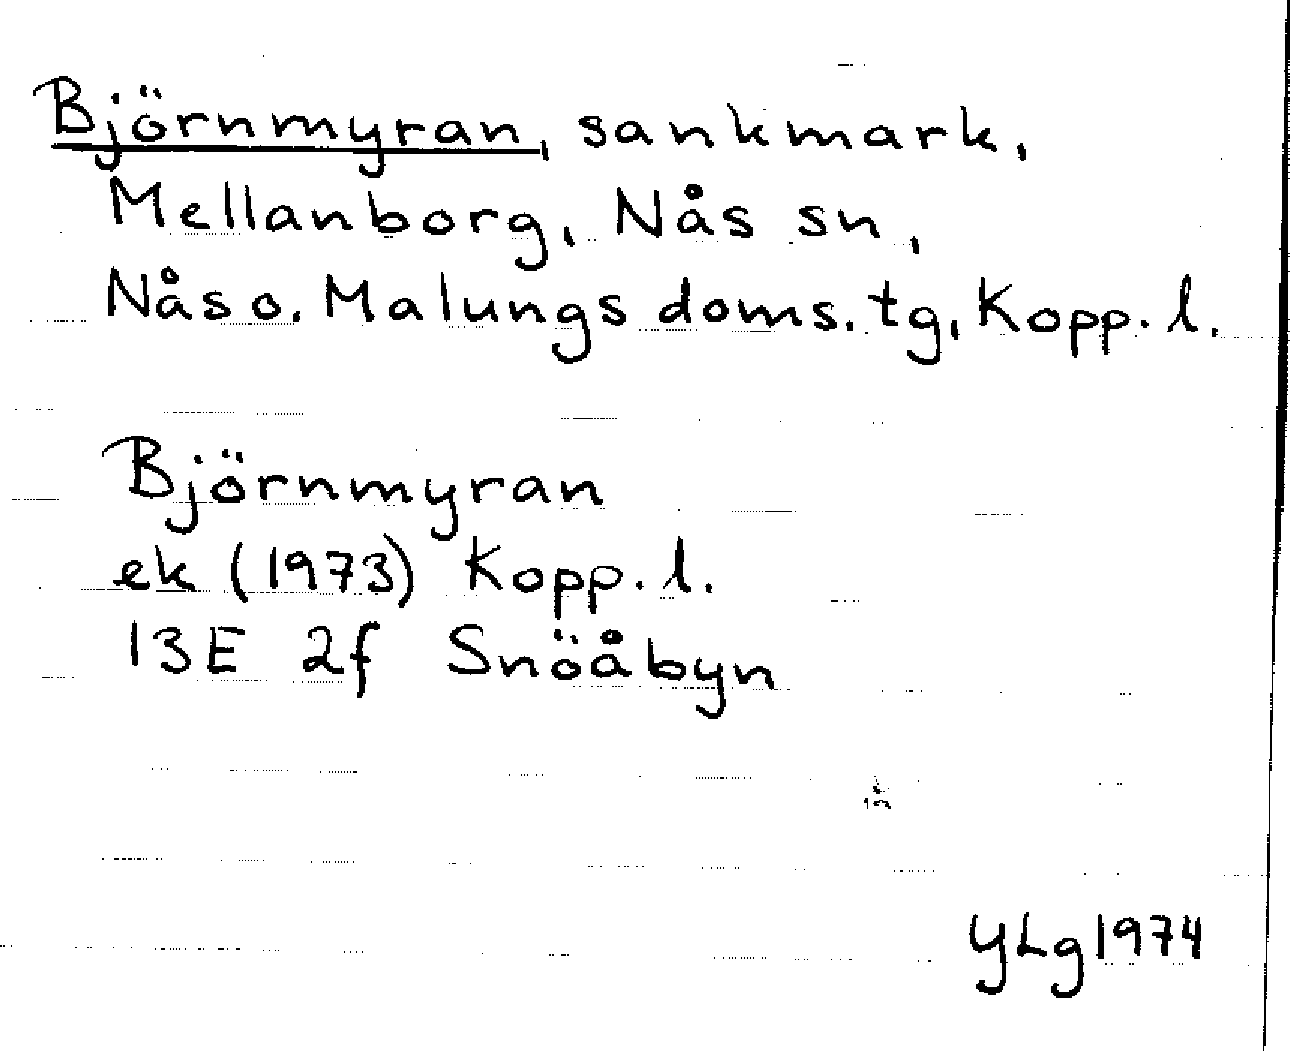 Björnmyran, sankmark,
Mellanborg, Nås sn,
Nås o. Malungs doms. tg, Kopp. l.
Björnmyran
ek (1973) Kopp. l.
13E 2f Snöåbyn
YLg 1974